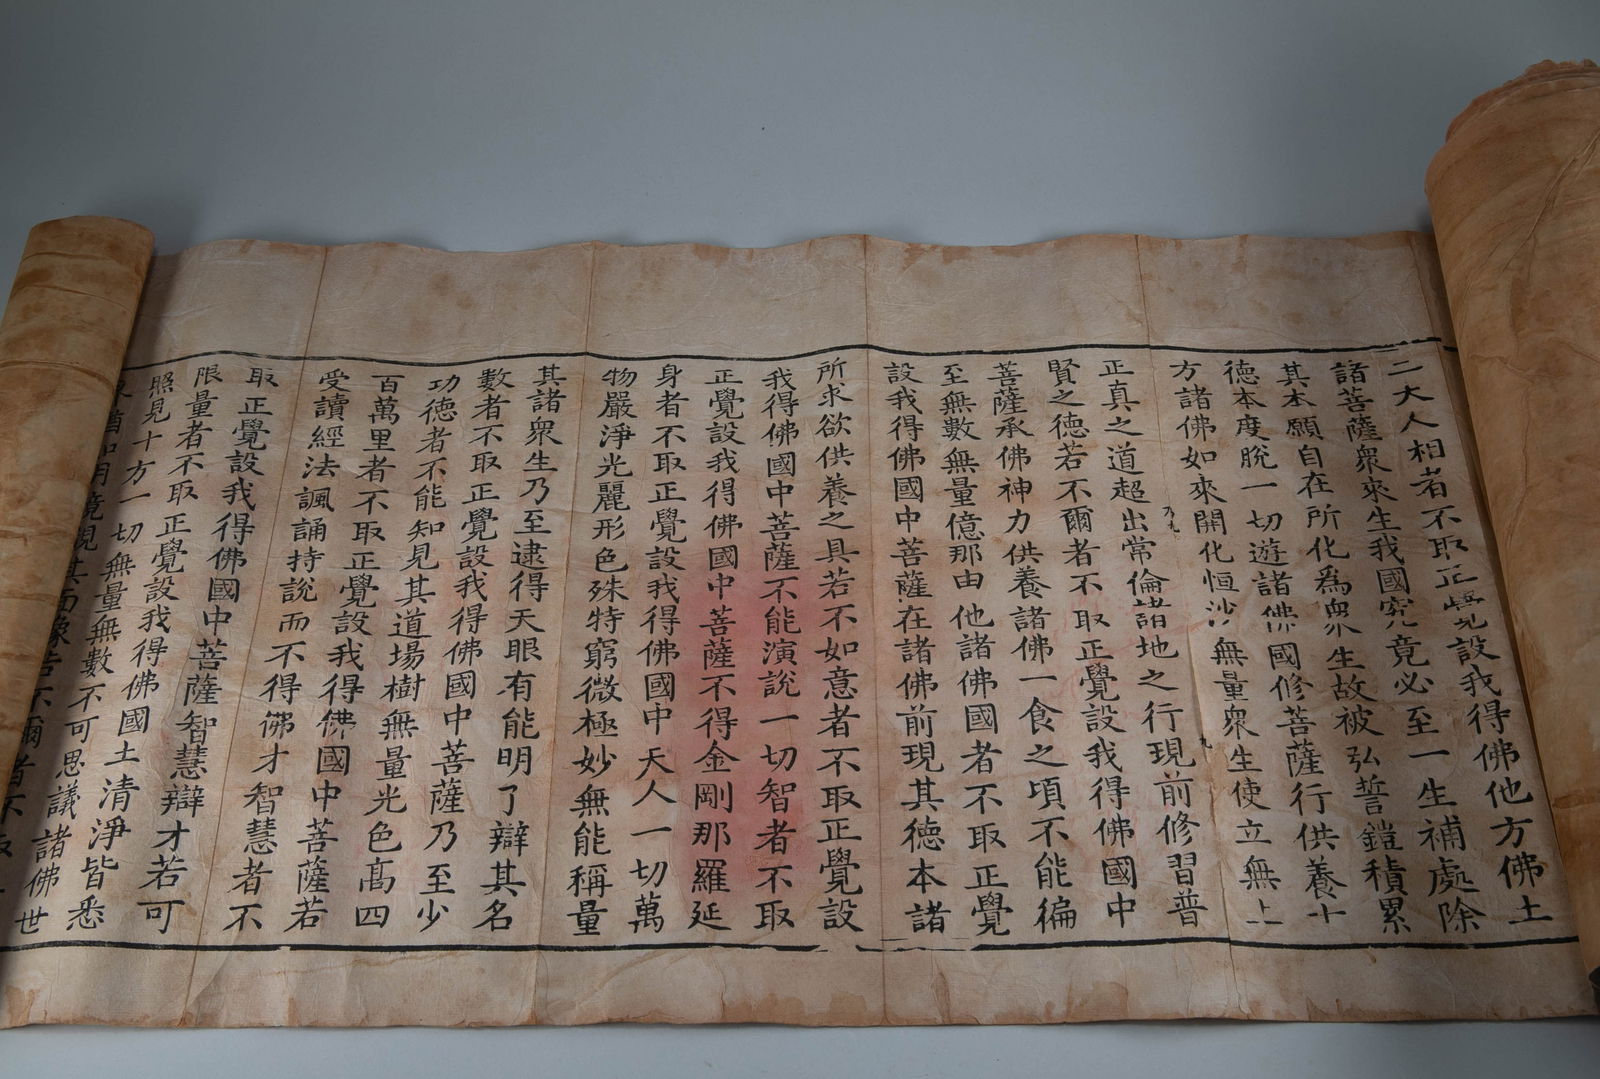 二大人相者不取正覺設我得佛他方佛土
諸菩薩衆來生我國究竟必至一生補處除
其本願自在所化為衆生故被弘誓鎧積累
德本度脫一切遊諸佛國修菩薩行供養十
方諸佛如來開化恒沙無量衆生使立無上
正真之道超出常倫諸地之行現前修習普
賢之德若不爾者不取正覺設我得佛國中
菩薩承佛神力供養諸佛一食之頃不能徧
至無數無量億那由他諸佛國者不取正覺
設我得佛國中菩薩在諸佛前現其德本諸
所求欲供養之具若不如意者不取正覺設
我得佛國中菩薩不能演說一切智者不取
正覺設我得佛國中菩薩不得金剛那羅延
身者不取正覺設我得佛國中天人一切萬
物嚴淨光麗形色殊特窮微極妙無能稱量
其諸衆生乃至逮得天眼有能明了辯其名
數者不取正覺設我得佛國中菩薩乃至少
功德者不能知見其道場樹無量光色高四
百萬里者不取正覺設我得佛國中菩薩若
受讀經法諷誦持說而不得佛才智慧者不
取正覺設我得佛國中菩薩智慧辯才若可
限量者不取正覺設我得佛國土清淨皆悉
照見十方一切無量無數不可思議諸佛世
明 其面像若不爾者不取